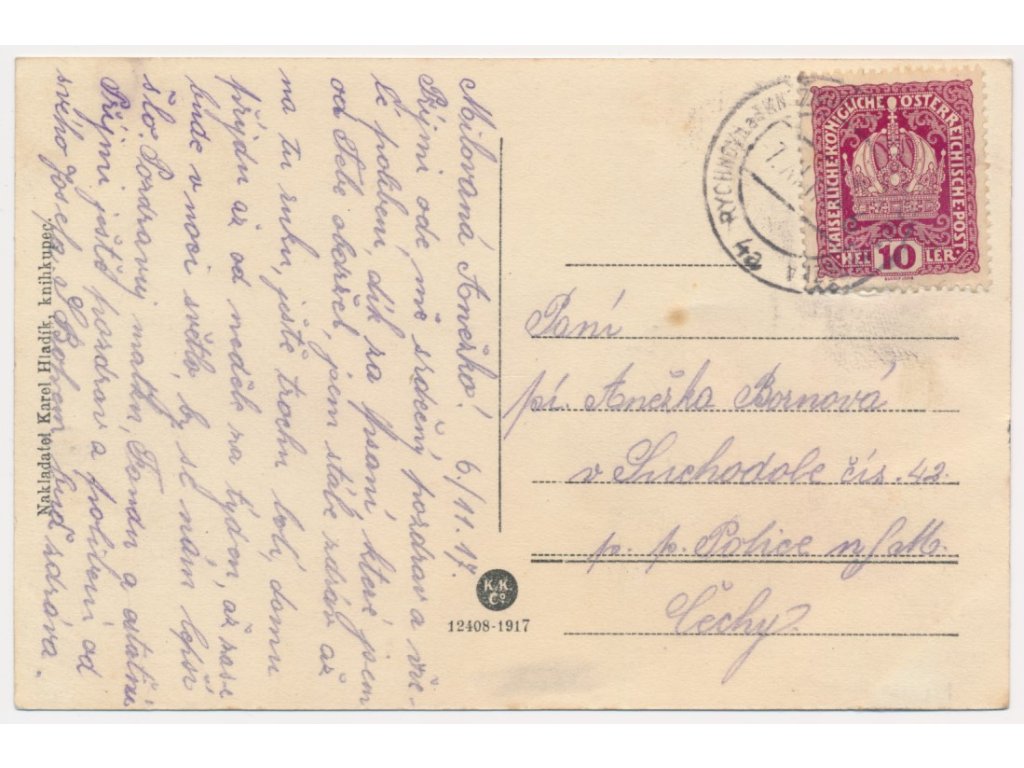 Milovaná Anežko! 6./11. 17.
Přijmi ode mě srdečný pozdrav a vře-
lé políbení, dík za psaní, které jsem
od Tebe obdržel, jsem stále zdráv až
na tu ruku, ještě trochu bolí, domu
přijdu až od neděle za týden, až zase
bude v noci světlo, by se nám lepší
šlo. Pozdravuj matku, Fandu a ostatní
Přijmi ještě pozdrav a políbení od
svého Josefa, S Bohem buď zdráva.
Nakladatel Karel Hladík, knihkupec.
K.K.
Cº
12408-1917
RYCHNOV
KAISERLICHE KÖNIGLICHE ÖSTERREICHISCHE POST
HELLER
10
Paní
pí. Anežka Bornová
v Suchodole čís. 42.
p. p. Police n/M.
Čechy